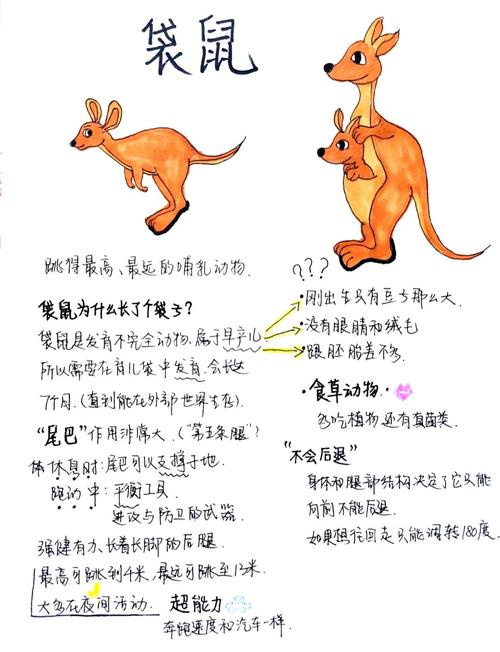 袋鼠
跳得最高、最远的哺乳动物.
袋鼠为什么长了个袋子?
袋鼠是发育不完全动物,属于早产儿
所以需要在育儿袋中发育.会长达
7个月.(直到能在外部世界生存).
"尾巴"作用非常大.("第五条腿")
休息时:尾巴可以支撑于地.
跑动中:平衡工具.
进攻与防卫的武器.
强健有力、长着长脚的后腿
最高可跳到4米,最远可跳至13米.
大多在夜间活动.
超能力
奔跑速度和汽车一样.
???
·刚出生只有豆子那么大.
·没有眼睛和绒毛
·跟胚胎差不多.
·食草动物.
多吃植物还有真菌类.
"不会后退"
身体和腿部结构决定了它只能
向前不能后退.
如果想往回走只能调转180度.